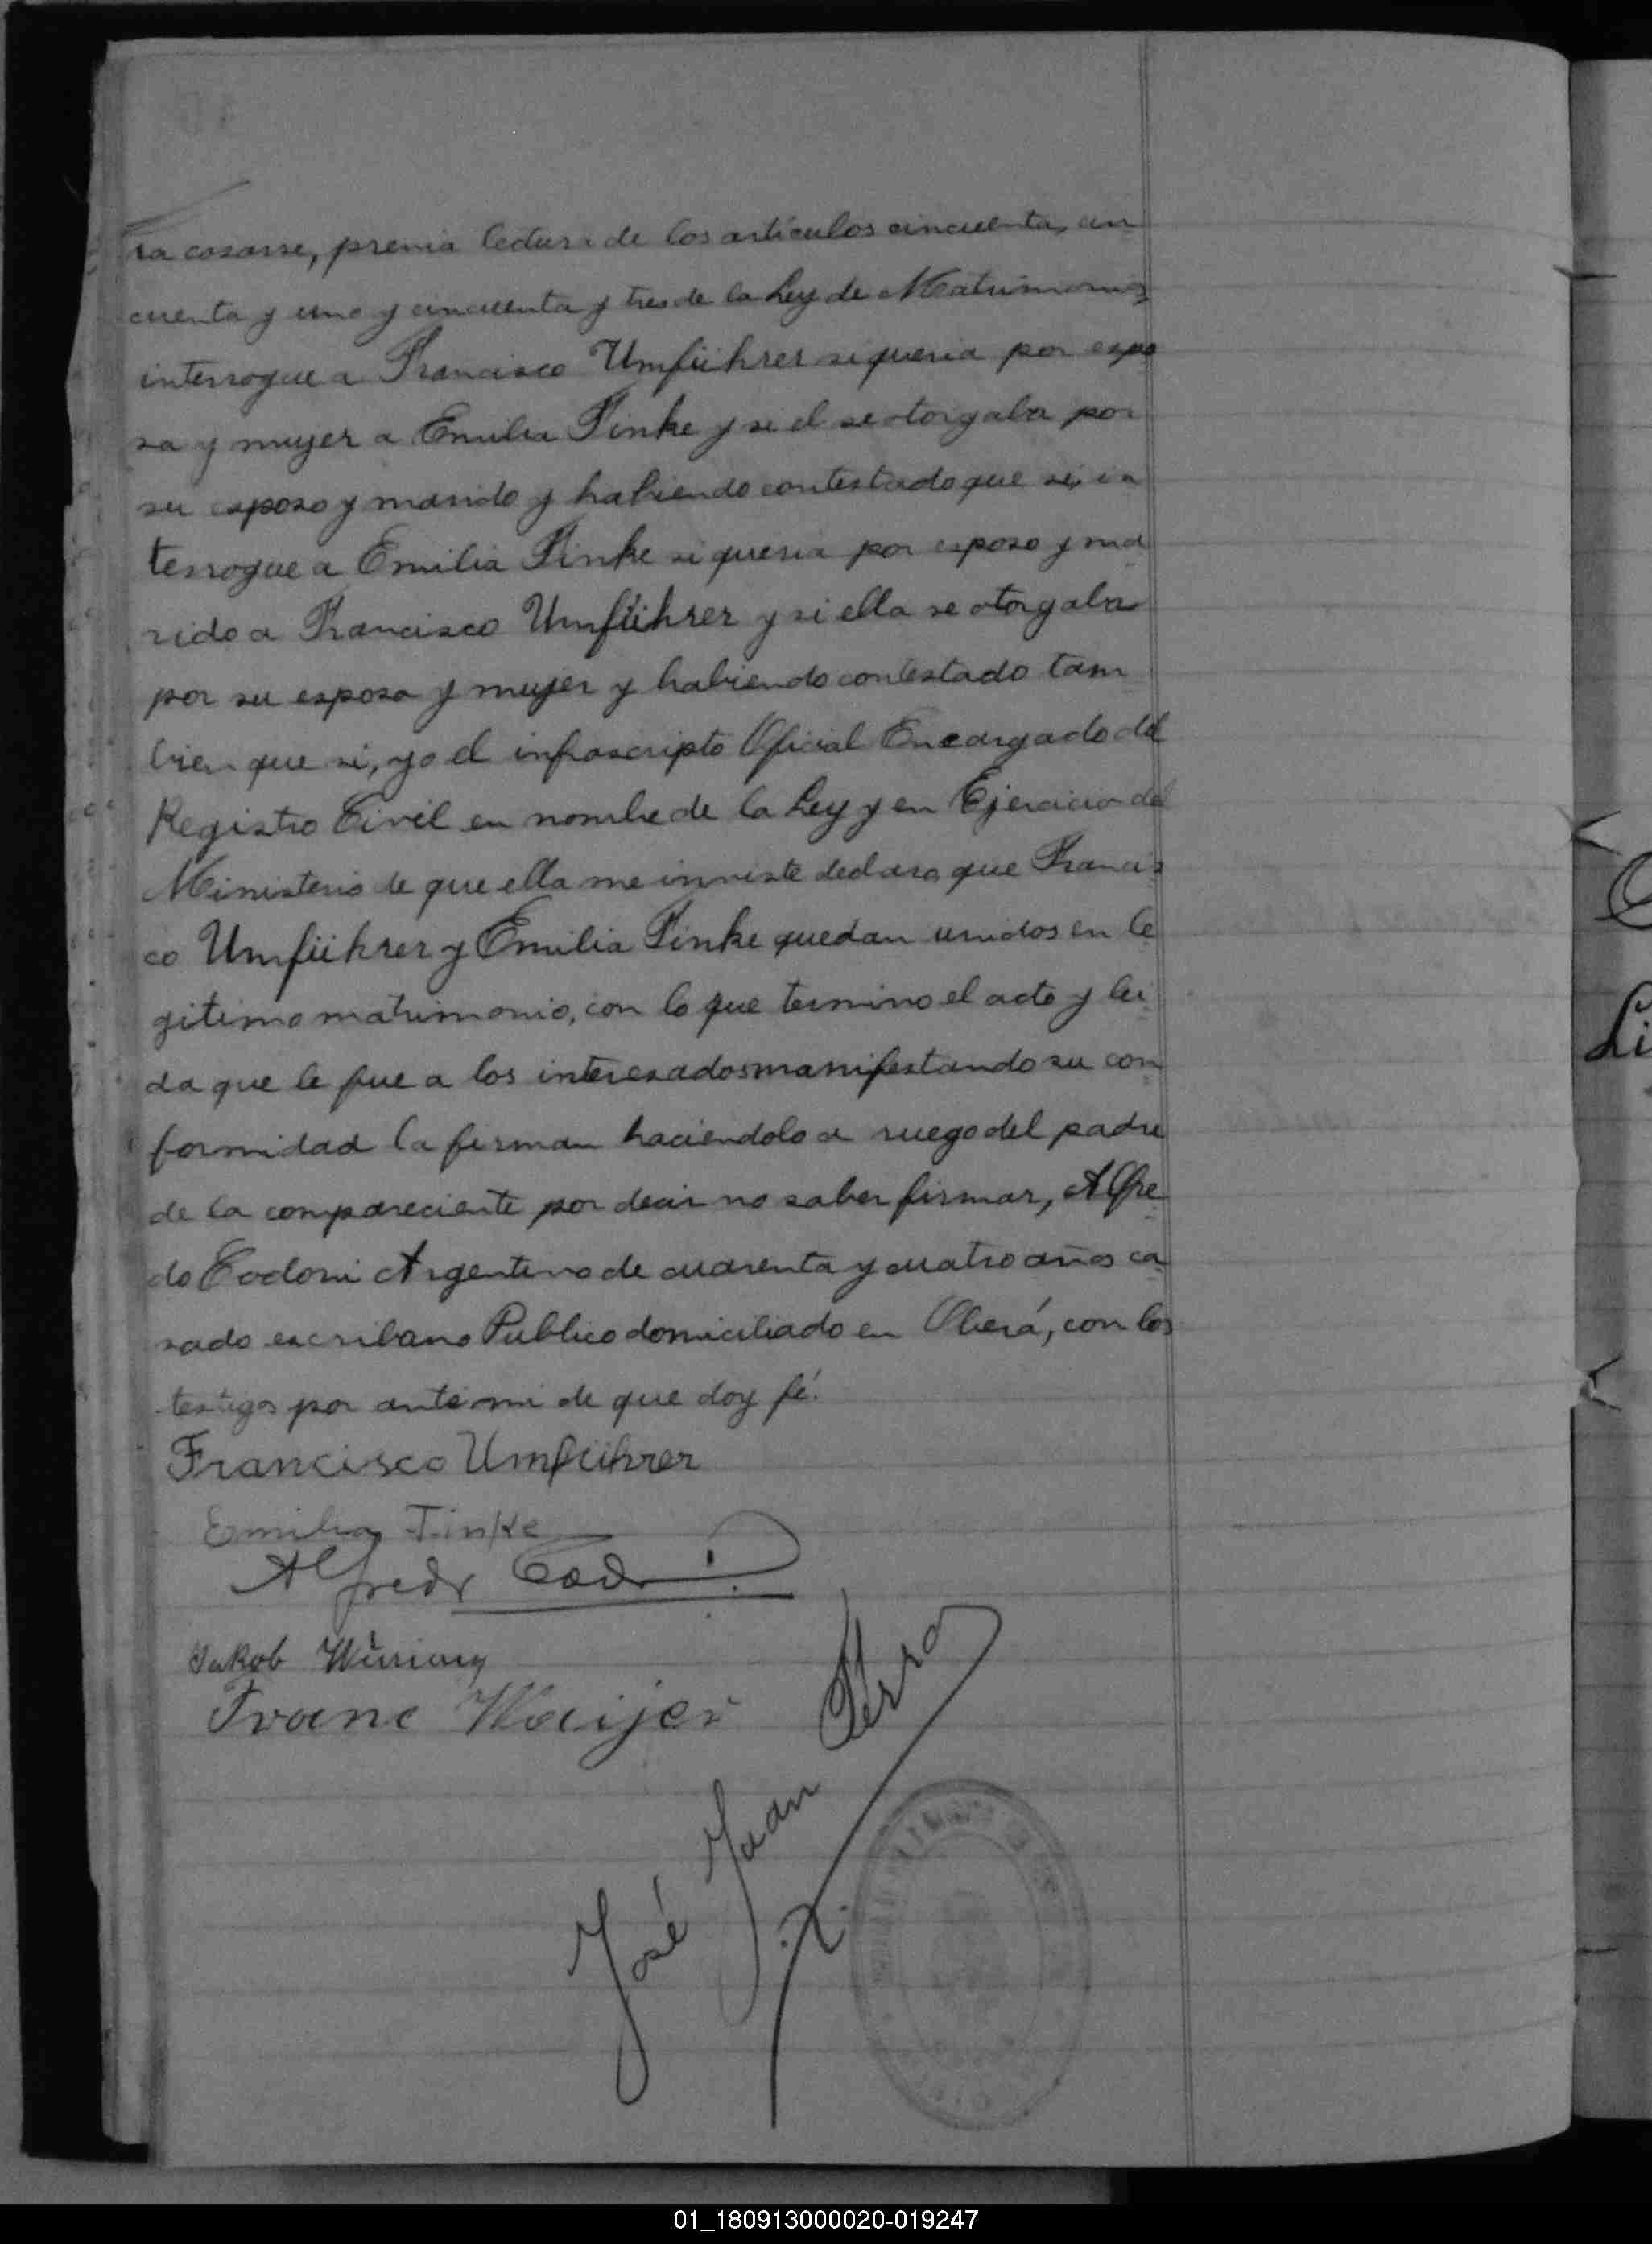 ra casarse, previa lectura de los artículos cincuenta, cin
cuenta y uno y cincuenta y tres de la Ley de Matrimonio,
interrogue a Francisco Umführer si queria por espo
sa y mujer a Emilia Tinke y si el se otorgaba por
su esposo y marido y habiendo contestado que si, in
terrogue a Emilia Tinke si queria por esposo y ma
rido a Francisco Umführer y si ella se otorgaba
por su esposa y mujer y habiendo contestado tam
bien que si, yo el infrascripto Oficial Encargado del
Registro Civil en nombre de la Ley y en Ejercicio del
Ministerio de que ella me inviste declaro, que Francis
co Umführer y Emilia Tinke quedan unidos en le
gitimo matrimonio, con lo que termino el acto y lei
da que le fue a los interesados manifestando su con
formidad la firman haciendolo a ruego del padre
de la compareciente por decir no saber firmar, Alfre
do Codoni Argentino de cuarenta y cuatro años ca
sado escribano Publico domiciliado en Oberá, con los
testigos por ante mi de que doy fé.
Francisco Umführer
Emilia Tinke
Alfredo
Jakob
Franc
José Juan
01_180913000020-019247